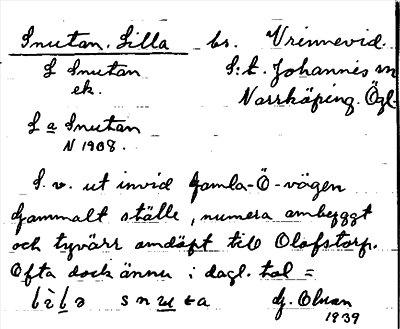 Snutan, Lilla hs. Vrinnevid.
L Snutan S:t. Johannes sn
ek. Norrköping. Ögl.
L a Snutan
N 1908.
S. v. ut invid Gamla-Ö-vägen
Gammalt ställe, numera ombyggt
och tyvärr omdöpt till Olofstorp.
Ofta dock ännu i dagl. tal =
G. Olson
1939